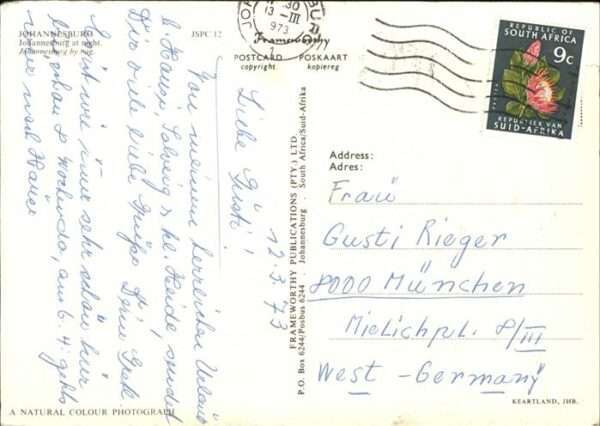 JOHANNESBURG
Johannesburg at night.
Johannesburg by nag.
JSPC 12
30
13 -III
973
Frameworthy
POSTCARD POSKAART
copyright kopiereg
REPUBLIC OF
SOUTH AFRICA
9c
REPUBLIEK VAN
SUID-AFRIKA
12.3.73
Liebe Gusti!
Von meinem herrlichen Urlaub
b. Hansi, & kl. Heide, sendet
Dir viele liebe Grüße Deine
sehr schön hier
Wochen da, am 6. 4. geht's
nach Hause
FRAMEWORTHY PUBLICATIONS (PTY.) LTD.
P.O. Box 6244/Posbus 6244 · Johannesburg · South Africa/Suid-Afrika
Address:
Adres:
Fraü
Gusti Rieger
8000 München
Mielichpl. 8/III
West-Germany
A NATURAL COLOUR PHOTOGRAPH
KEARTLAND, JHB.